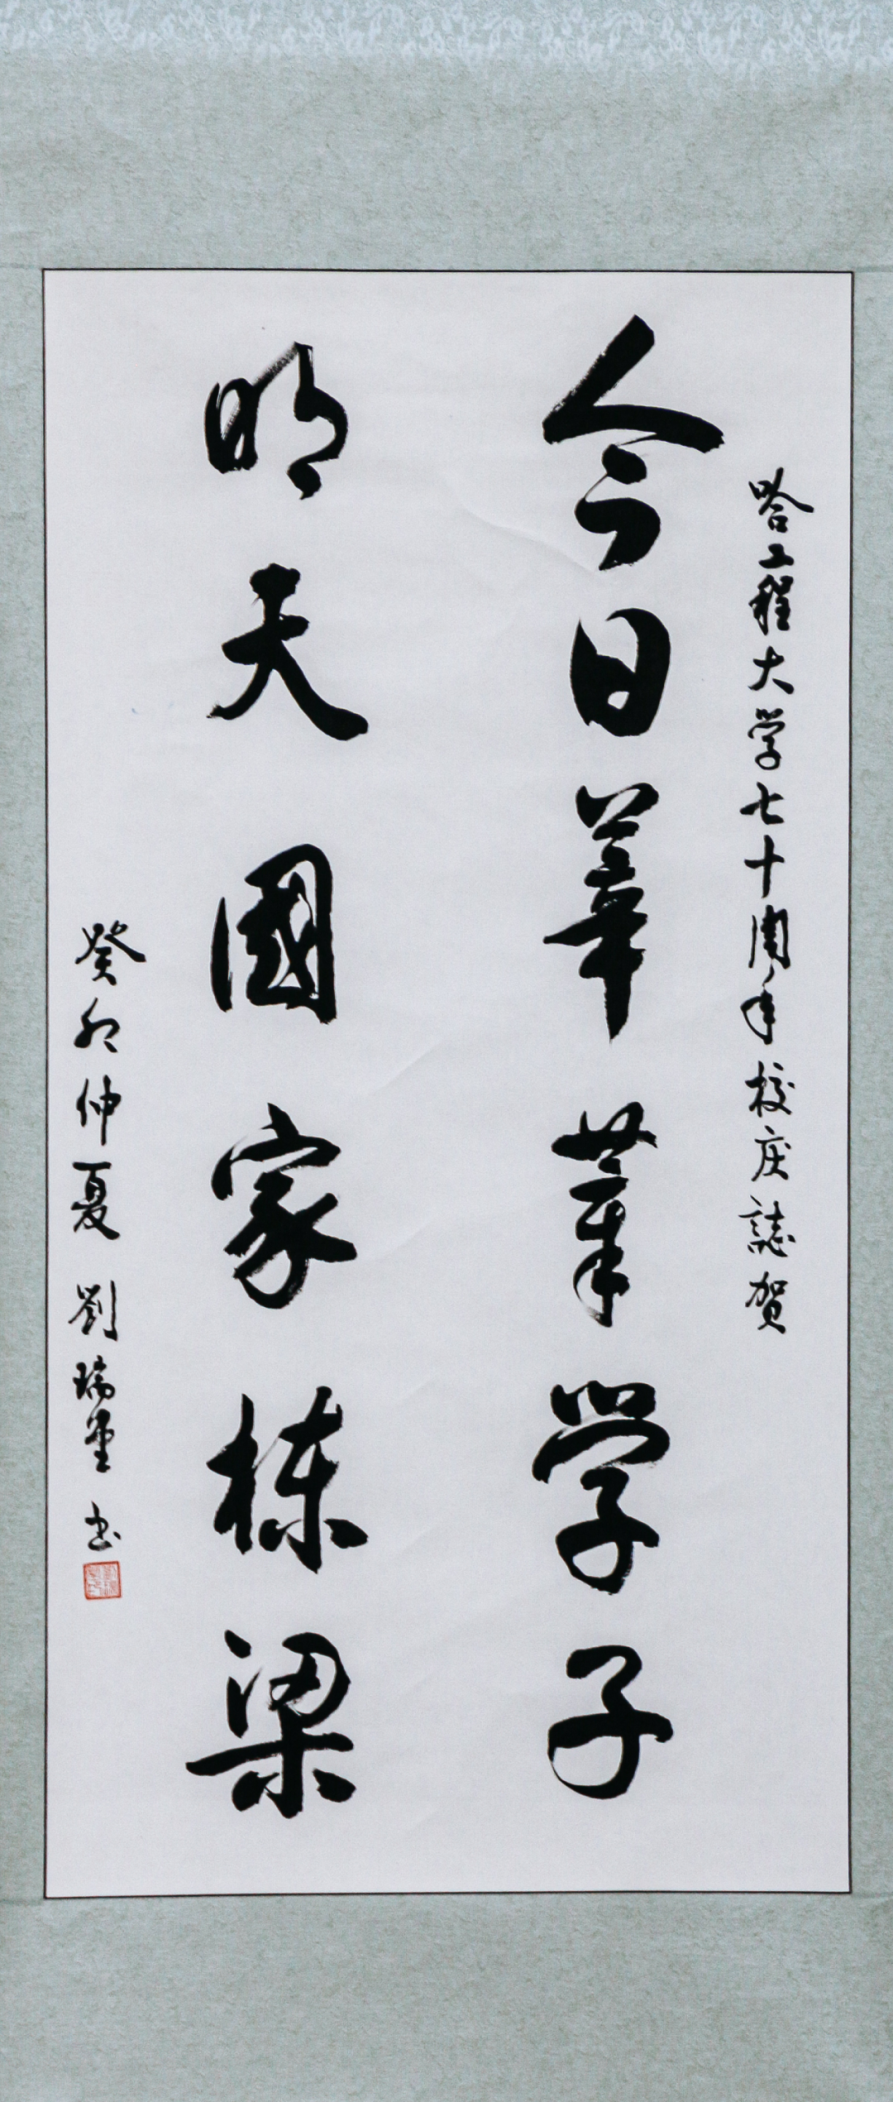 哈工程大学七十周年校庆誌贺
今日莘莘学子
明天國家栋梁
癸卯仲夏 劉瑞 书